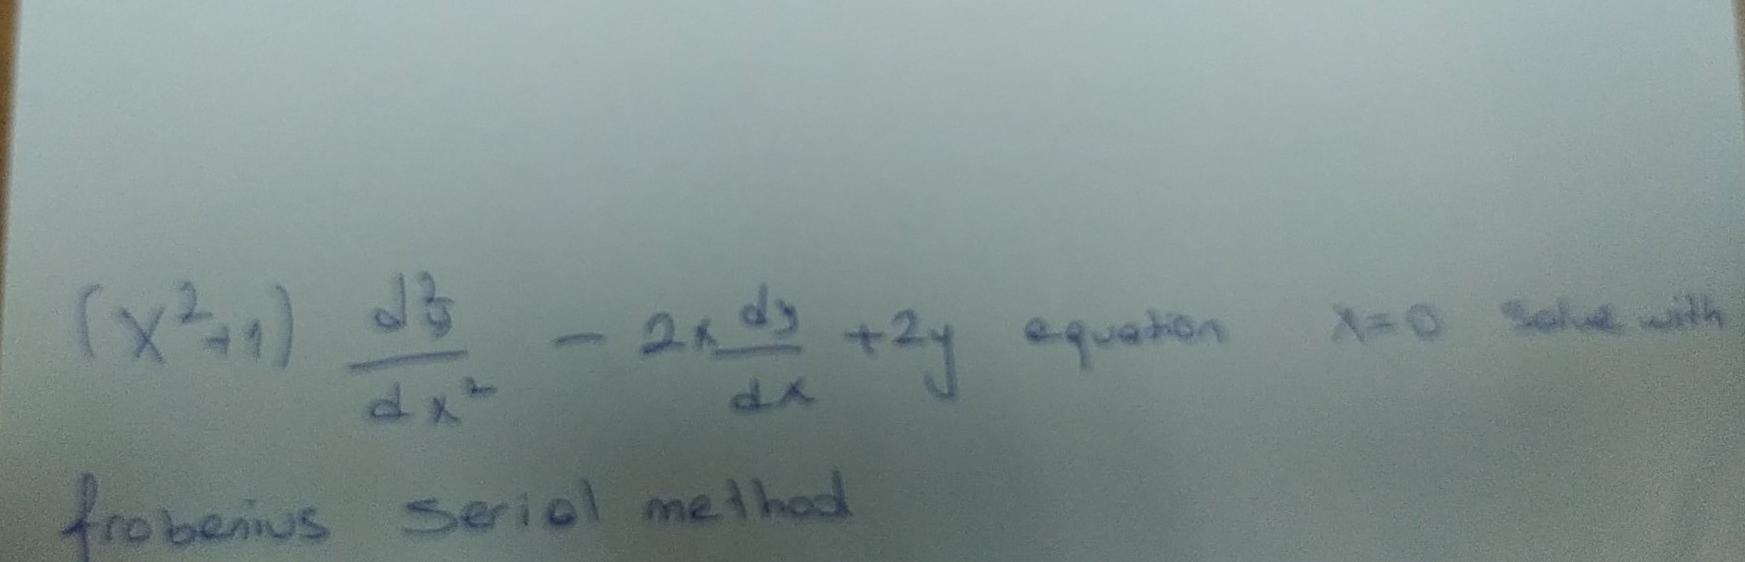 (x²+1) d²y/dx² - 2x dy/dx + 2y equation x=0 solve with
frobenius serial method